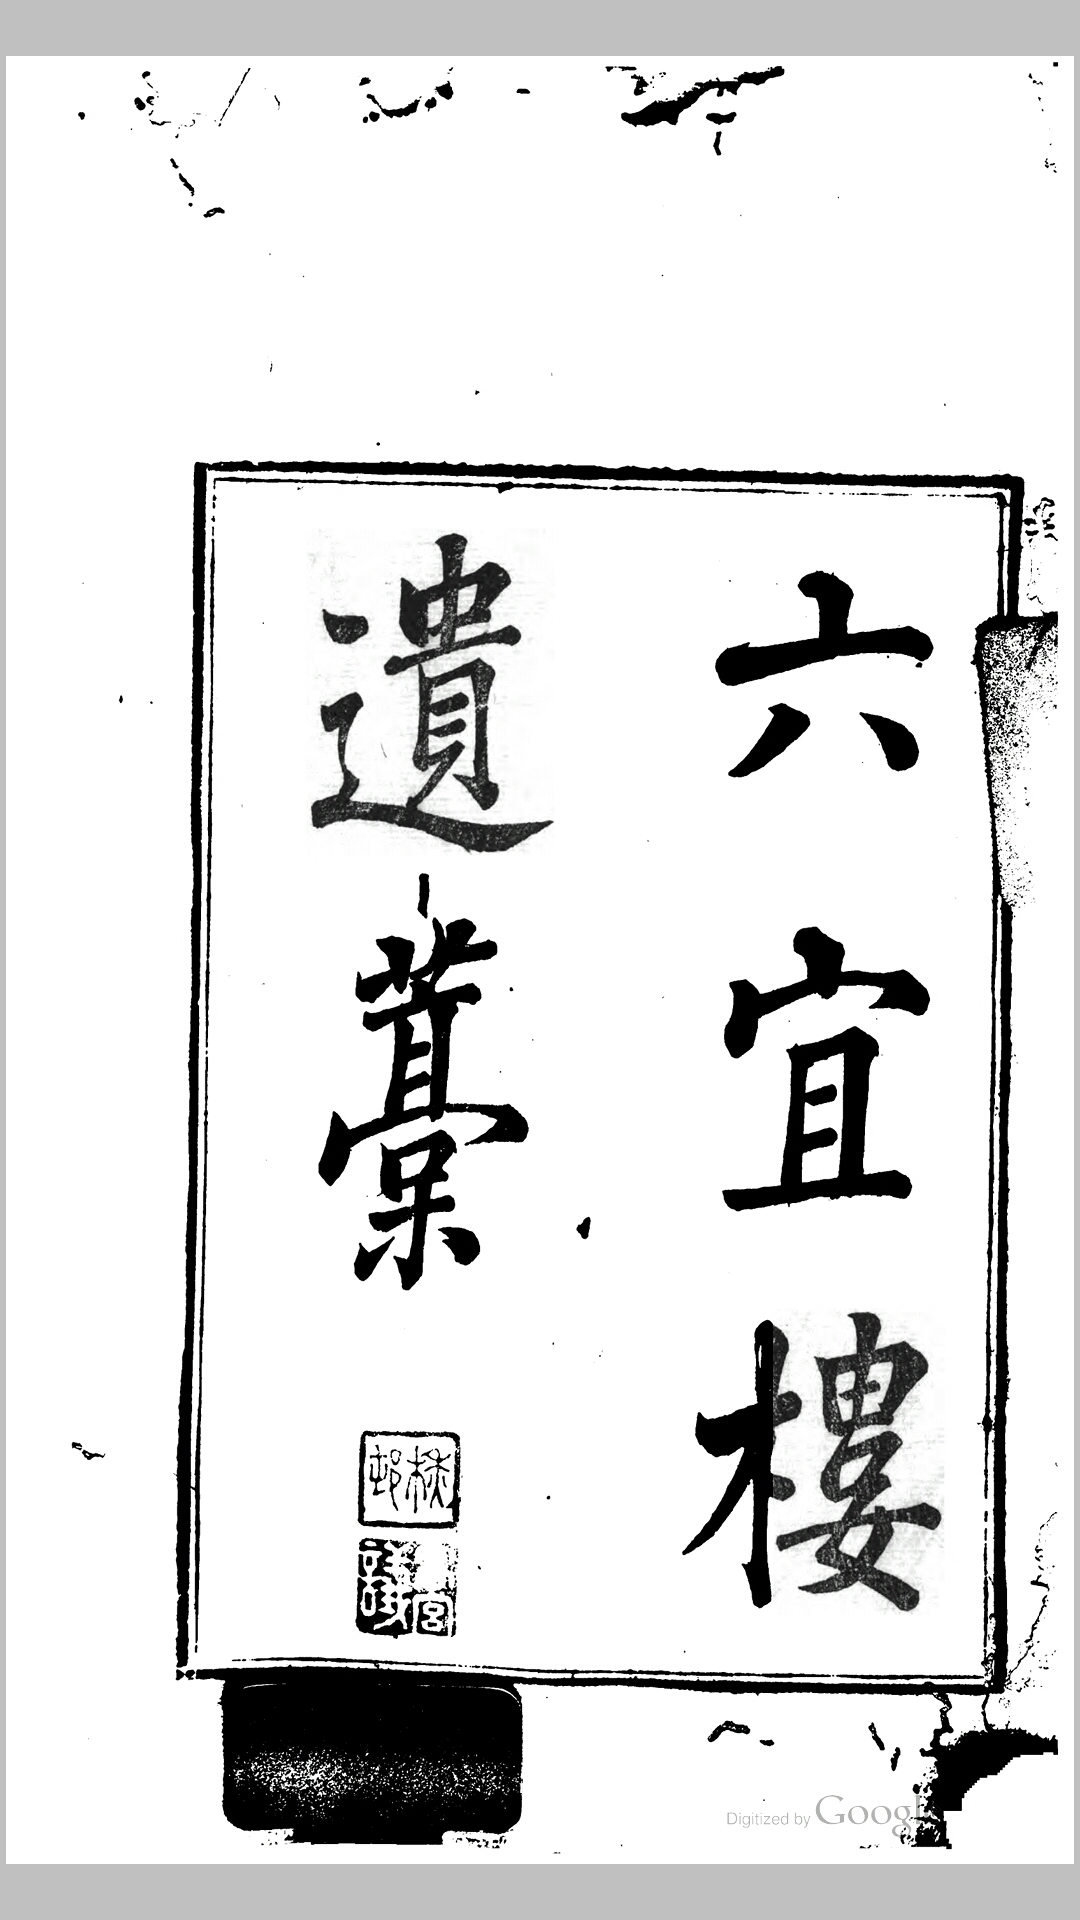 六宜樓
遺藁
Digitized by Google